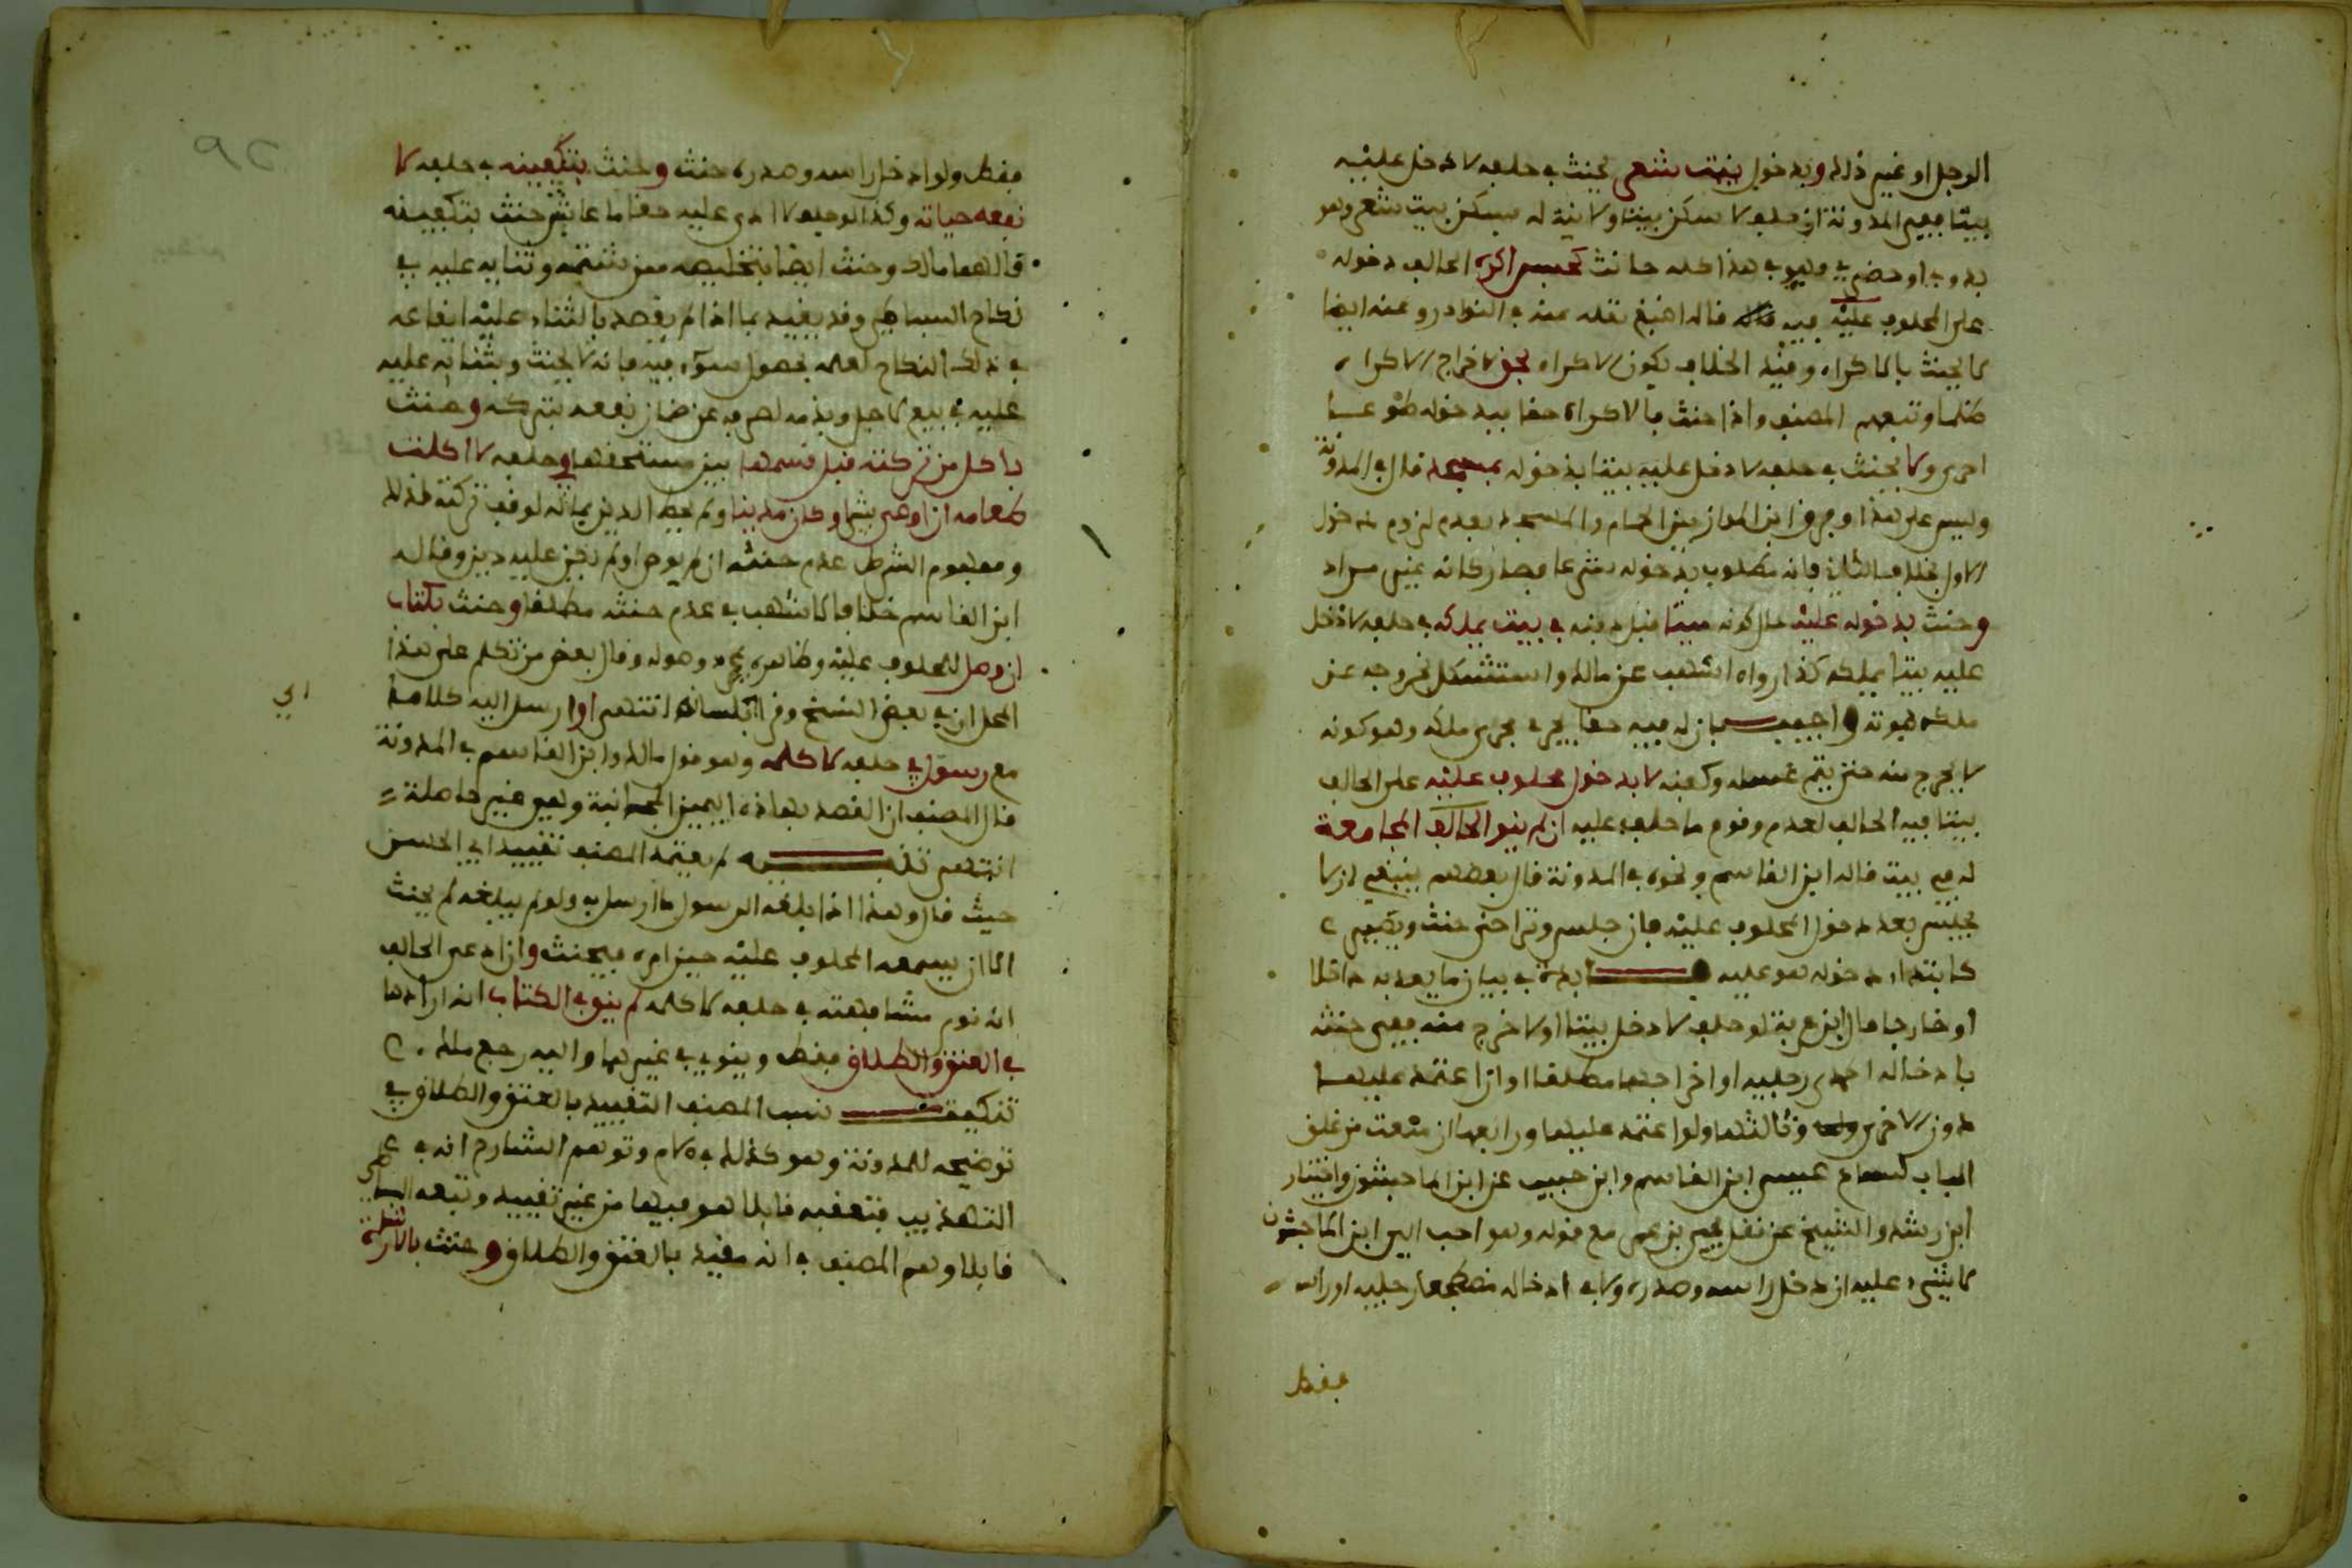 الرجل او غير ذلك وبدخول بيت شعر يحنث في حلفه لا دخل عليه
بيتا ففي المدونة ان حلف لا سكن بيتا ولا نية له فسكن بيت شعر وهو
بدوي او حضري فهو في هذا كله حانث كحبس اكره الحالف دخوله
على المحلوف عليه فيه قاله اصبغ نقله عنه في النوادر وعنه ايضا
لا يحنث بالاكراه وقيد الخلاف بكون الاكراه بحق لاخراج الاكراه
ظلما وتبعه المصنف واذا حنث بالاكراه حقا فبدخوله طوعا
احرى ولا يحنث في حلفه لا دخل عليه بيتا بدخوله بمسجد قال في المدونة
وليس على هذا وفرق ابن المواز بين الحمام والمسجد بعدم لزوم دخول
الاول بخلاف الثاني فانه مطلوب بدخوله شرعا فصار كانه غير مراد
وحنث بدخوله عليه حال كونه ميتا قبل دفنه في بيت يملكه في حلفه لا دخل
عليه بيتا يملكه كذا رواه اشهب عن مالك واستشكل بخروجه عن
ملكه بموته واجيب بان له فيه حقا يجري مجرى ملكه وهو كونه
لا يخرج منه حتى يتم غسله وكفنه لا بدخول محلوف عليه على الحالف
بيتا فيه الحالف لعدم وقوع ما حلف عليه ان لم ينو الحالف المجامعة
له في بيت قاله ابن القاسم ونحوه في المدونة قال بعضهم ينبغي ان لا
يجلس بعد دخول المحلوف عليه فان جلس وتراخى حنث ويصير
كابتداء دخوله هو عليه فايدة في بيان ما يعد به داخلا
او خارجا قال ابن عرفة لو حلف لا دخل بيتا او لا خرج منه ففي حنثه
بادخاله احدى رجليه او اخراجها مطلقا او ان اعتمد عليها
دون الاخرى وثالثها ولو اعتمد عليهما ورابعها ان منعت من غلق
الباب لسماع عيسى ابن القاسم وابن حبيب عن ابن الماجشون واختيار
ابن رشد والشيخ عن نقل يحيى بن عمر مع قوله وهو احب الي ابن الماجشون
لا شيء عليه ان دخل راسه وصدره ولا في ادخاله مضطجعا رجليه او راسه
فقط
فقط ولو ادخل راسه وصدره حنث وحنث بتكفينه في حلفه لا
نفعه حياته وكذا لو حلف لا ادى عليه حقا ما عاش حنث بتكفينه
قالهما مالك وحنث ايضا بتخليصه ممن شتمه وثنايه عليه في
نكاح السماع وقد يقيد بما اذا لم يقصد بالثناء عليه ايقاعه
في ذلك النكاح لعلمه بحصول سوء فيه فانه لا يحنث وبثنايه عليه
عليه في بيع لاجل وبذمه لصرفه عن ضمان نفعه بتركه وحنث
باكل من تركته قبل قسمها بين مستحقها في حلفه لا اكلت
طعامه ان اوصى بشيء او كان مدينا ولم يحط الدين بماله لوقف تركته لذلك
ومفهوم الشرط عدم حنثه ان لم يوص او لم يكن عليه دين وقاله
ابن القاسم خلافا لاشهب في عدم حنثه مطلقا وحنث بكتاب
ان وصل للمحلوف عليه وظاهره مجرد وصوله وقال بعض من تكلم على هذا
المحل ان في بعض النسخ وقرا بلسانه انتهى او ارسل اليه كلاما
مع رسول في حلفه لا كلمه وهو قول مالك وابن القاسم في المدونة
قال المصنف ان القصد بهاذه اليمين المجانبة وهي غير حاصلة
انتهى تنبيه لم يعتمد المصنف تقييد ابي الحسن
حيث قال وهذا اذا بلغه الرسول ما ارسل به ولو لم يبلغه لم يحنث
الا ان يسمعه المحلوف عليه حين امره فيحنث وان ادعى الحالف
انه نوى مشافهته في حلفه لا كلمه لم ينو في الكتاب انه ارادها
في العتق والطلاق فقط وينوى في غيرهما واليه رجع مالك
تنكيت نسب المصنف التقييد بالعتق والطلاق في
توضيحه للمدونة وهو كذلك في الام وتوهم الشارح انه في
التهذيب فتعقبه قايلا هو فيها من غير تقييد وتبعه البساطي
قايلا وهم المصنف في انه مقيد بالعتق والطلاق وحنث بالاشارة